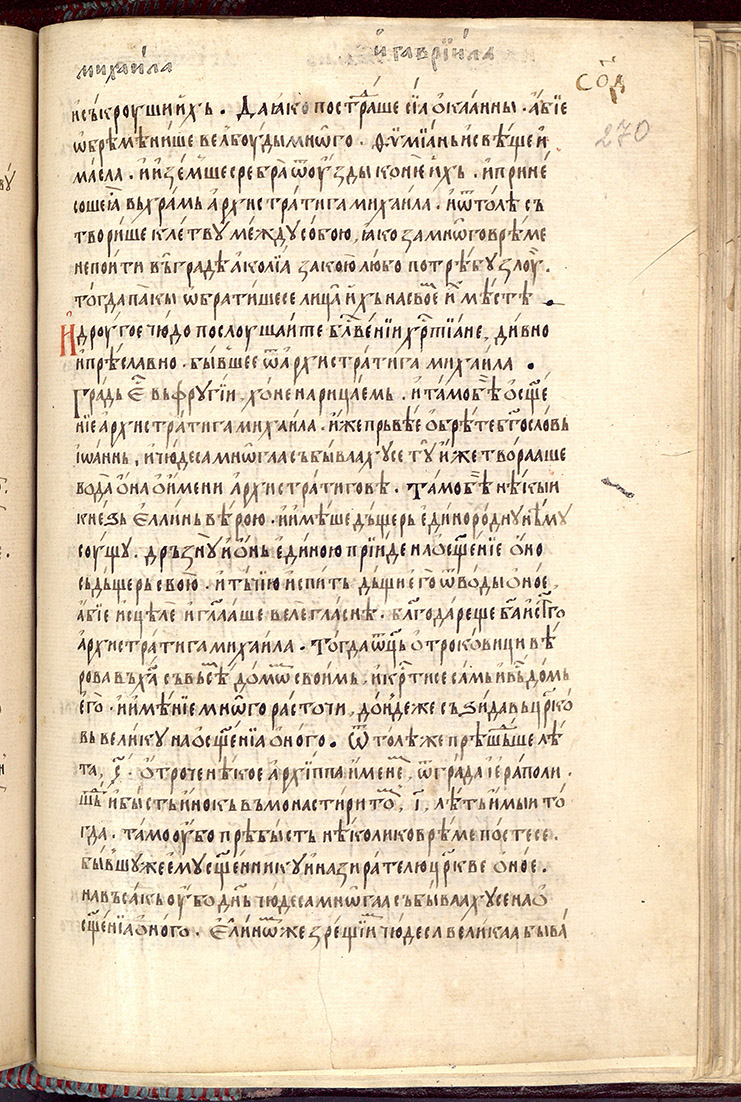 михаи́ла и҆ гаврїи́ла
со҃д
270
и҆ съкроуши и҆хь . Да ꙗ҆ко постра́даше сїа ѻ҆каанны . а҆бїе
ѡ҆брѣме́нише велбоуды мнѡ́го . ѳѷмїань и свѣще и҆
масла . и҆ и҆зе́мше сребра ѿ оу҆зды коне и҆хь . и҆ прине́
соше їа̀ въ храмь а҆рхистрати́га михаи́ла . и҆ ѿто́лѣ съ
твори́ше кле́твꙋ междꙋ собо́ю, ꙗ҆ко за мнѡ́го врѣме
не пои́ти въ градѣ а҆колїа̀ за кою̀ любо потрѣбꙋ злоу .
то́гда па́кы ѡ҆брати́шесе лица̀ и҆хь на свое и҆м мѣстѣ .
И҆ дроуго́е чю́до послоуша́ите бл҃гве́нїи хрⷭ҇тїане, ди́вно
и҆ прѣсла́вно . бы́вшее ѿ а҆рхистрати́га михаи́ла .
Градь є҆ⷭ҇ въ фругїи, хо́не нарица́емь . и҆ та́мо бѣ̀ ѡ҆сщ҃е
нїе а҆рхистрати́га михаи́ла . и҆же прьвѣе ѻ҆брѣте бг҃осло́вь
їѡа́ннь, и҆ чюдеса мнѡ́гаа събыва́ахꙋсе тꙋ̀ и҆же твора́аше
вода̀ ѻ҆на ѻ҆ и҆мени а҆рхистратиговѣ . Та́мо бѣ̀ нѣ́кыи
кне́зь є҆ллинь вѣ́рою . и҆ и҆мѣше дъщерь є҆диноро́днꙋ нѣ́мꙋ
соу́щꙋ . дръзнꙋ и ѻ҆нь є҆ди́ною прїи́де на ѻ҆сщ҃е́нїе ѻ҆но
съ дъще́рь свое́ю . и҆ тъ́чїю и҆спи́ть дъщи є҆го ѿ воды ѻ҆ное,
а҆бїе и҆сцѣле и҆ гл҃а́аше велегла́снѣ . бл҃года́реще ба҃ и҆ ст҃го
а҆рхистрати́га михаи́ла . Тогда ѿц҃ь ѻ҆трокови́ци вѣ́
рова въ ха҃ съ въсѣ́мь до́мѡм свои́мь, и҆ крⷭ҇тисе са́мь и҆ въ до́мь
є҆го . и҆ и҆мѣ́нїе мнѡ́го расточи, до́ндеже съзи́да въ цр҃ко́
вь вели́кꙋ на ѻ҆сщ҃е́нїа ѻ҆ного . Ѿто́лѣ же прѣше́дьше лѣ́
та, ч҃ . ѻ҆троче нѣ́кое а҆рхїппа и҆мене́м, ѿ гра́да їе́раполи .
и҆ бы́сть и҆нокь въ монастири то́м, і҃, лѣ́ть и҆мы то́
гда . та́мо оу́бо прѣбы́сть нѣ́колико врѣме посте́се .
бы́вшꙋ же є҆мꙋ сщ҃е́нникꙋ и҆ назира́телю цр҃кве ѻ҆ное .
на въса́къ оу́бо дн҃ь чюдеса мнѡ́гаа събыва́ахꙋсе на ѻ҆
сщ҃е́нїа ѻ҆ного . Є҆ли́нѡм же зре́щїи чюдеса вели́каа быва́